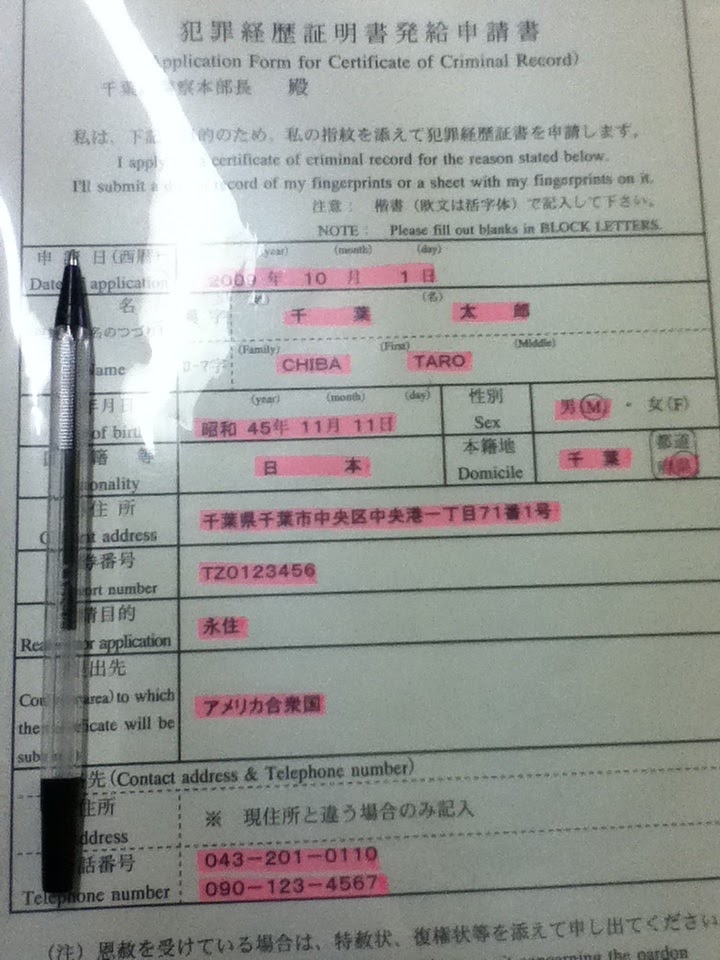 犯罪経歴証明書発給申請書
Application Form for Certificate of Criminal Record)
千葉 察本部長 殿
私は、下記 的のため、私の指紋を添えて犯罪経歴証書を申請します。
I apply a certificate of criminal record for the reason stated below.
I'll submit a record of my fingerprints or a sheet with my fingerprints on it.
注意: 楷書(欧文は活字体)で記入して下さい。
NOTE: Please fill out blanks in BLOCK LETTERS.
申 日(西暦)
(year) (month) (day)
Date application
2009 年 10 月 1 日
名
(名)
千 葉 太 郎
名のつづ
(Family) (First) (Middle)
Name
CHIBA TARO
年月日
(year) (month) (day)
of birth
昭和 45年 11月 11日
性別
Sex
男(M)・女(F)
籍 等
onality
日 本
本籍地
Domicile
千 葉
都道
府県
住 所
address
千葉県千葉市中央区中央港一丁目71番1号
券番号
port number
TZ0123456
請目的
application
永住
出先
area) to which
the icate will be
アメリカ合衆国
先(Contact address & Telephone number)
住所
ddress
※ 現住所と違う場合のみ記入
話番号
Telephone number
043-201-0110
090-123-4567
(注) 恩赦を受けている場合は、特赦状、復権状等を添えて申し出てください
concerning the pardon